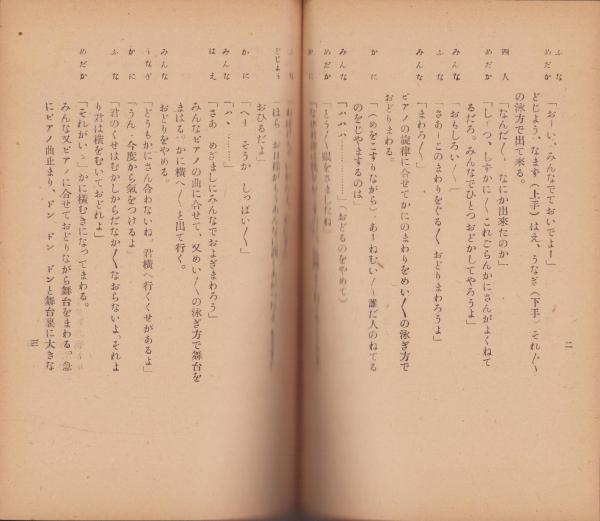 二
ふな
めだか
「おーい、みんなでておいでよー」
どじょう、なまず(上手)はえ、うなぎ(下手)それ〴〵
の泳方で出て来る。
四人 「なんだ〳〵、なにか出来たのか」
めだか 「しーっ、しずかに〳〵これごらんかにさんがよくねて
るだろ。みんなでひとつおどかしてやろうよ」
みんな 「おもしろい〳〵」
ふな 「さあーこのまわりをぐる〳〵おどりまわろうよ」
みんな 「まわろ〳〵」
ピアノの旋律に合せてかにのまわりをめい〳〵の泳ぎ方で
おどりまわる。
かに 「(めをこすりながら)、あーねむい〳〵誰だ人のねてる
のをじやまするのは」
みんな 「ハハハ………」(おどるのをやめて)
めだか 「とう〳〵眼をさましたね」
かに
どじょう 「ほら、お日様が
おひるだよ」
かに 「へー そうか しっぱい〳〵」
みんな 「ハヽ………」
はえ 「さあ、めざましにみんなでおよぎまわろう」
みんなピアノの曲に合せて、又めい〳〵の泳ぎ方で舞台を
まはる。かに横へ〳〵と出て行く。
みんな おどりをやめる。
うなぎ 「どうもかにさん合わないね、君横へ行くくせがあるよ」
かに 「うん、今度から氣をつけるよ」
ふな 「君のくせはむかしからだなか〳〵なおらないよ、それよ
り君は横をむいておどれよ」
めだか 「それがいゝ」かに横むきになってまわる。
みんな又ピアノに合せておどりながら舞台をまわる。急
にピアノ曲止まり、ドン ドン ドンと舞台裏に大きな
三